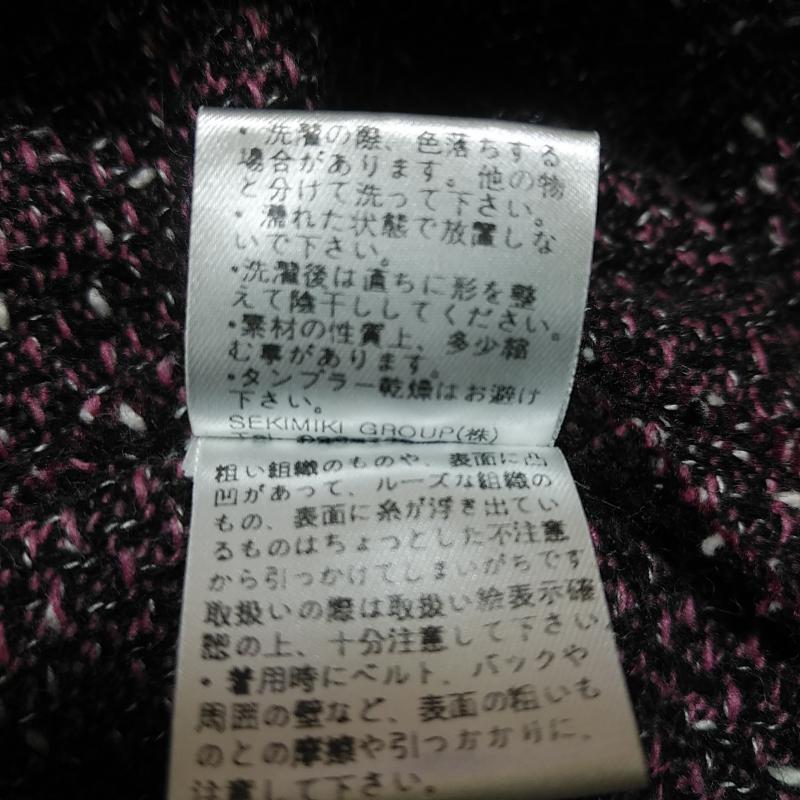 ・洗濯の際、色落ちする
場合があります。他の物
と分けて洗って下さい。
・濡れた状態で放置しな
いで下さい。
・洗濯後は直ちに形を整
えて陰干ししてください。
・素材の性質上、多少縮
む事があります。
・タンブラー乾燥はお避け
下さい。
SEKIMIKI GROUP(株)
粗い組織のものや、表面に凸
凹があって、ルーズな組織の
もの、表面に糸が浮き出てい
るものはちょっとした不注意
から引っかけてしまいがちです
取扱いの際は取扱い絵表示確
認の上、十分注意して下さい
・着用時にベルト、バックや
周囲の壁など、表面の粗いも
のとの摩擦や引つかかりに、
注意して下さい。